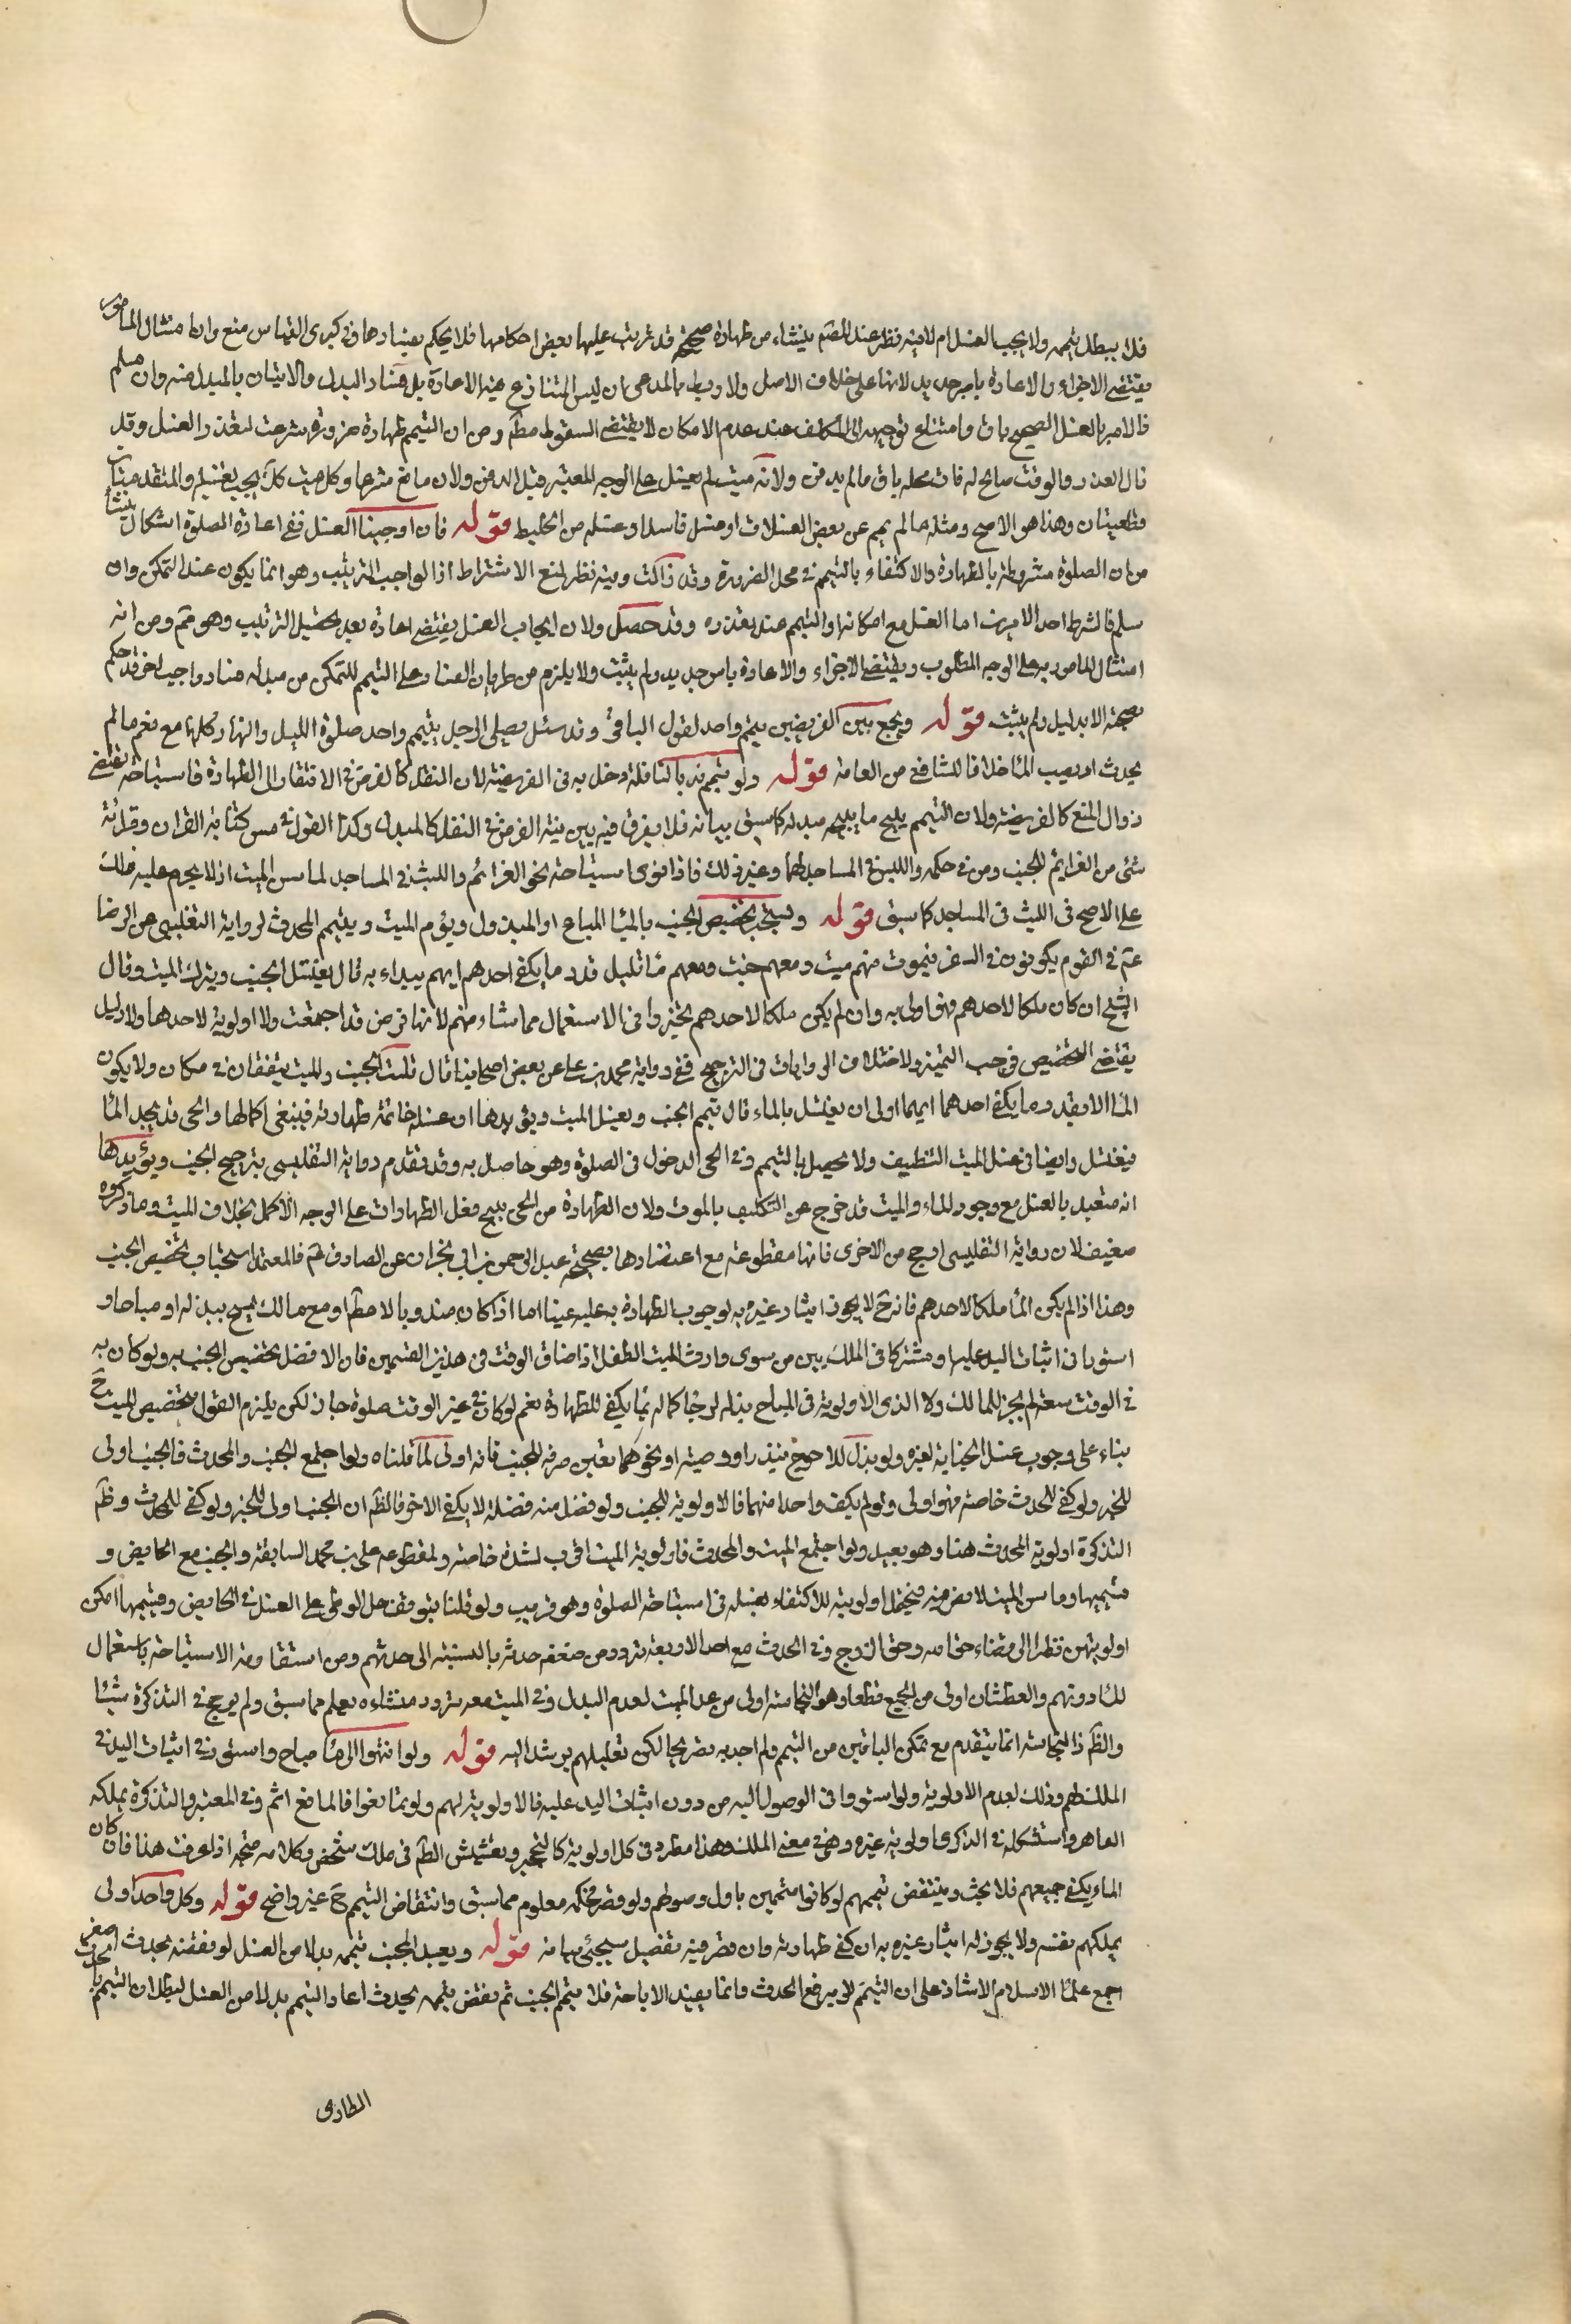 فلا يبطل تيممه ولا يجب الغسل ام لا فيه نظر عند المصنف ينشاء من طهارة صحيحة قد ترتبت عليها بعض احكامها فلا يحكم بفسادها وفي كبرى القياس منع وان امتثال المامور
يقتضي الاجزاء والاعادة بامر جديد لانها على خلاف الاصل ولا ربط بالمدعى بان ليس المتنازع فيه الاعادة بل فساد البدل والاتيان بالمبدل منه وان سلم
فالامر بالغسل الصحيح باق وامتناع توجهه الى المكلف عند عدم الامكان لا يقتضي السقوط مطلقا ومن ان التيمم طهارة ضرورة شرعت لتعذر الغسل وقد
زال العذر والوقت صالح له فان محله باق مالم يدفن ولانه ميت لم يغسل على الوجه المعتبر قبل الدفن ولا مانع شرعا وكل ميت كك يجب تغسيله والمقدمتان
قطعيتان وهذا هو الاصح ومثله مالم ييمم عن بعض الغسلات او غسل فاسدا وغسله من الخليط قوله فان اوجبنا الغسل ففي اعادة الصلوة اشكال ينشأ
من ان الصلوة مشروطة بالطهارة والاكتفاء بالتيمم في محل الضرورة وقد زالت وفيه نظر لمنع الاشتراط اذ الواجب الترتيب وهو انما يكون عند التمكن وان
سلم فالشرط احد الامرين اما الغسل مع امكانه او التيمم عند تعذره وقد حصل ولان ايجاب الغسل يقتضي اعادة بعد تحصيل الترتيب وهو مم ومن انه
امتثال المامور به على الوجه المطلوب ويقتضي الاجزاء والاعادة بامر جديد ولم يثبت ولا يلزم من طريان الفساد على التيمم للتمكن من مبدله فساد واجب اخر قد حكم
بصحته الا بدليل ولم يثبت قوله ويجمع بين الفريضتين بتيمم واحد لقول الباقر وقد سئل يصلي الرجل بتيمم واحد صلوة الليل والنهار كلها مع نعم مالم
يحدث او يصيب الماء خلافا للشافعي من العامة قوله ولو تيمم ندبا لنافلة دخل به في الفريضة لان النفل كالفرض في الافتقار الى الطهارة فاستباحته تقتضي
زوال المنع كالفريضة ولان التيمم يبيح ما يبيحه مبدله كما سبق بيانه فلا يفرق فيه بين نية الفرض والنفل كالمبدل وكذا القول في مس كتابة القران وقرائة
شئ من العزايم للجنب ومن في حكمه واللبث في المساجد لهما وغير ذلك فاذا نوى استباحة نحو العزائم واللبث في المساجد لماس الميت اذ لا يحرم عليه ذلك
على الاصح في اللبث في المساجد كما سبق قوله ويستحب تخصيص الجنب بالماء المباح او المبذول وييمم الميت ويتيمم المحدث لرواية التفليسي عن الرضا
عم في القوم يكونون في السفر فيموت منهم ميت ومعهم جنب ومعهم ماء قليل قدر ما يكفي احدهم ايهم يبداء به قال يغتسل الجنب ويترك الميت وقال
الشيخ ان كان ملكا لاحدهم فهو اولى به وان لم يكن ملكا لاحدهم تخيروا في الاستعمال مما شاء منهم لانها فروض قد اجتمعت ولا اولوية لاحدهما ولا دليل
يقتضي التخصيص فوجب التخيير ولاختلاف الروايات في الترجيح ففي رواية محمد بن علي عن بعض اصحابنا قال قلت الجنب والميت يتفقان في مكان ولا يكون
الماء الا بقدر ما يكفي احدهما ايهما اولى ان يغتسل بالماء قال تيمم الجنب ويغسل الميت ويؤيدها ان غسله خاتمة طهارته فينبغي اكمالها والحي قد يجد الماء
فيغتسل وايضا في غسل الميت التنظيف ولا يحصل بالتيمم وفي الحي الدخول في الصلوة وهو حاصل به وقد تقدم رواية التفليسي بترجيح الجنب ويؤيدها
انه متعبد بالغسل مع وجود الماء والميت قد خرج عن التكليف بالموت ولان الطهارة من الحي تبيح فعل الطهارات على الوجه الاكمل بخلاف الميت وما ذكروه
ضعيف لان رواية التفليسي ارجح من الاخرى فانها مقطوعة مع اعتضادها بصحيحة عبد الرحمن بن ابي نجران عن الصادق عم فالمعتمد استحباب تخصيص الجنب
وهذا اذا لم يكن الماء ملكا لاحدهم فانه ح لا يجوز ايثار غيره به لوجوب الطهارة به عليه عينا اما اذا كان مندوبا لا مطلقا او مع مالك يسمح ببذله او مباحا و
استووا في اثبات اليد عليه او مشتركا في الملك بين من سوى وارث الميت الطفل اذا ضاق الوقت في هذين القسمين فان الافضل تخصيص الجنب به ولو كان
في الوقت سعة لم يجز للمالك ولا الذي الاولوية في المباح بذله لرجا كماله بما يكفي للطهارة نعم لو كان في غير الوقت صلوة جاز لكن يلزم القول بتخصيص الميت ح
بناء على وجوب غسل الجنابة لغيره ولو بذل للاحوج بنذر او وصية او نحوهما تعين صرفه للجنب فانه اولى لما قلناه ولو اجتمع الجنب والمحدث فالجنب اولى
للخبر ولو كفى للمحدث خاصة فهو اولى ولو لم يكف واحدا منهما فالاولوية للجنب ولو فضل منه فضلة لا يكفي الاخر فالظم ان الجنب اولى للخبر ولو كفى للمحدث وظم
التذكرة اولوية المحدث هنا وهو بعيد ولو اجتمع الميت والمحدث فاولوية الميت اقرب لشدة خاصته ولمقطوعه علي بن محمد السابقة والجنب مع الحايض و
قسيميها وماس الميت فيحتمل اولويته للاكتفاء بغسله في استباحة الصلوة وهو قريب ولو قلنا بتوقف حل الوطي على الغسل في الحايض وقسيمها امكن
اولويتهن نظرا الى قضاء حق الله وحق الزوج وفي المحدث مع احد الاربعة تردد من ضعف حدثه بالنسبة الى حدثهم ومن استفادته الاستباحة باستعمال
الماء دونهم والعطشان اولى من الجميع قطعا وهو النجاسة اولى من عدا الميت لعدم البدل وفي الميت معه تردد منشاءه يعلم مما سبق ولم يرجح في التذكرة شيئا
والظم ذا النجاسة انما يتقدم مع تمكن الباقين من التيمم ولم اجد به تصريحا لكن تعليلهم يرشد اليه قوله ولو انتهوا الى ماء مباح واستووا في اثبات اليد في
الملك لهم وذلك لعدم الاولوية ولو استووا في الوصول اليه من دون اثبات اليد عليه فالاولوية لهم ولو تمانعوا فالمانع اثم وفي المعتبر والتذكرة يملكه
القاهر واستشكله في الذكرى اولوية غيره وهي في معنى الملك وهذا مطرد في كل اولوية كالتحجير وتعشيش الطير في ملك شخص وكلامه متجه اذا عرفت هذا فان كان
الماء يكفي جميعهم فلا بحث وينتقض تيممهم لو كانوا متيممين باول وصولهم ولو قصر فحكمه معلوم مما سبق وانتقاض التيمم ح غير واضح قوله وكل واحد اولى
بملكهم نفسه ولا يجوز له ايثار غيره به ان كفى طهارته وان قصر فيه تفصيل سيجئ بيانه قوله ويعيد المجنب تيممه بدلا من الغسل لو نقضه بحدث اصغر
اجمع علماء الاسلام الا شاذ على ان التيمم لا يرفع الحدث وانما يفيد الاباحة فلو تيمم الجنب ثم نقض تيممه بحدث اعاد التيمم بدلا من الغسل لبطلان التيمم بالحدث
الطاري